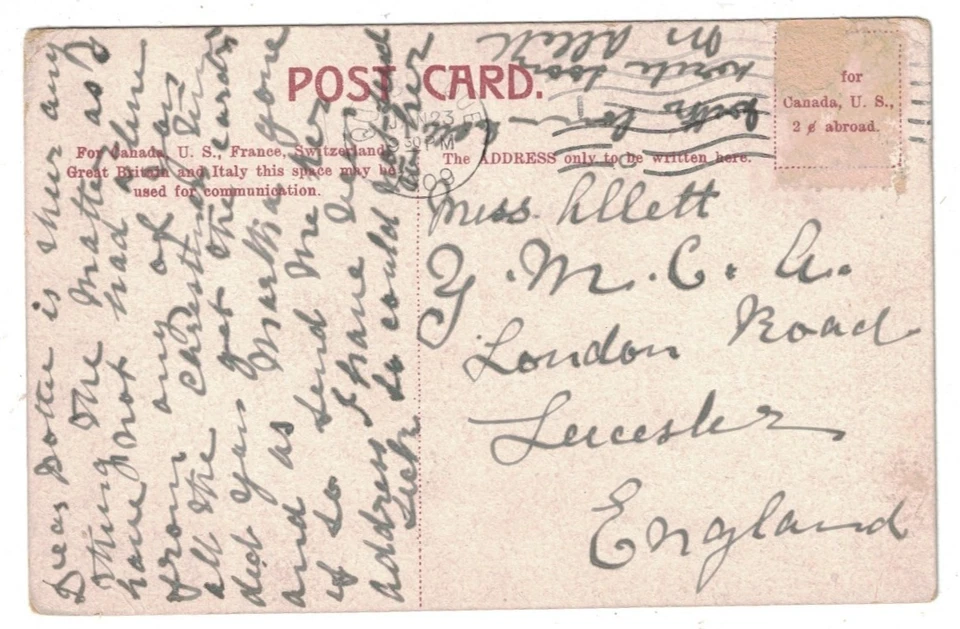 POST CARD.
For Canada, U. S., France, Switzerland,
Great Britain and Italy this space may be
used for communication.
The ADDRESS only to be written here.
for
Canada, U. S.,
2 ¢ abroad.
JAN 23
30 PM
09
Miss Allett
Y. M. C. A.
London Road
Leicester
England
Dear Dottie is ther any
thing the matter as I
have not had a line
from any of you
all the
did you get the cards
and as gone
if so send me her
I have
address so could
Luck
with love
write soon
M Allett